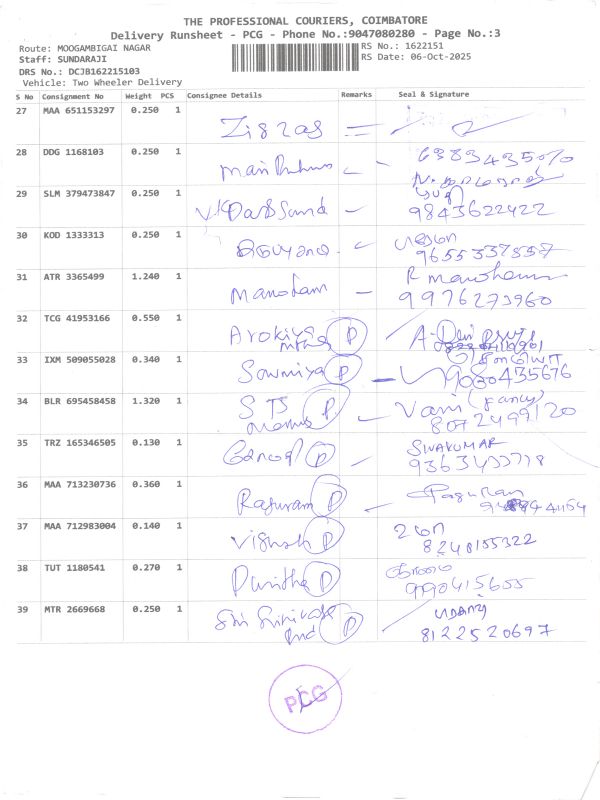 THE PROFESSIONAL COURIERS, COIMBATORE
Delivery Runsheet - PCG - Phone No.:9047080280 - Page No.:3
Route: MOOGAMBIGAI NAGAR RS No.: 1622151
Staff: SUNDARAJI RS Date: 06-Oct-2025
DRS No.: DCJB162215103
Vehicle: Two Wheeler Delivery
S No Consignment No Weight PCS Consignee Details Remarks Seal & Signature
27 MAA 651153297 0.250 1
28 DDG 1168103 0.250 1
29 SLM 379473847 0.250 1
9843622422
30 KOD 1333313 0.250 1
9655337557
31 ATR 3365499 1.240 1 R manoharan
9976273960
32 TCG 41953166 0.550 1 Arokiya P
33 IXM 509055028 0.340 1 Sowmiya P
9080435676
34 BLR 695458458 1.320 1 STS P Vani (fancy)
8072499120
35 TRZ 165346505 0.130 1 Ganesh P SIVAKUMAR
36 MAA 713230736 0.360 1 Rajuram P
37 MAA 712983004 0.140 1 Vignesh P
8248155322
38 TUT 1180541 0.270 1 Punitha P
9790415655
39 MTR 2669668 0.250 1 Sri Srinivasa Ind P
8122520697
PCG